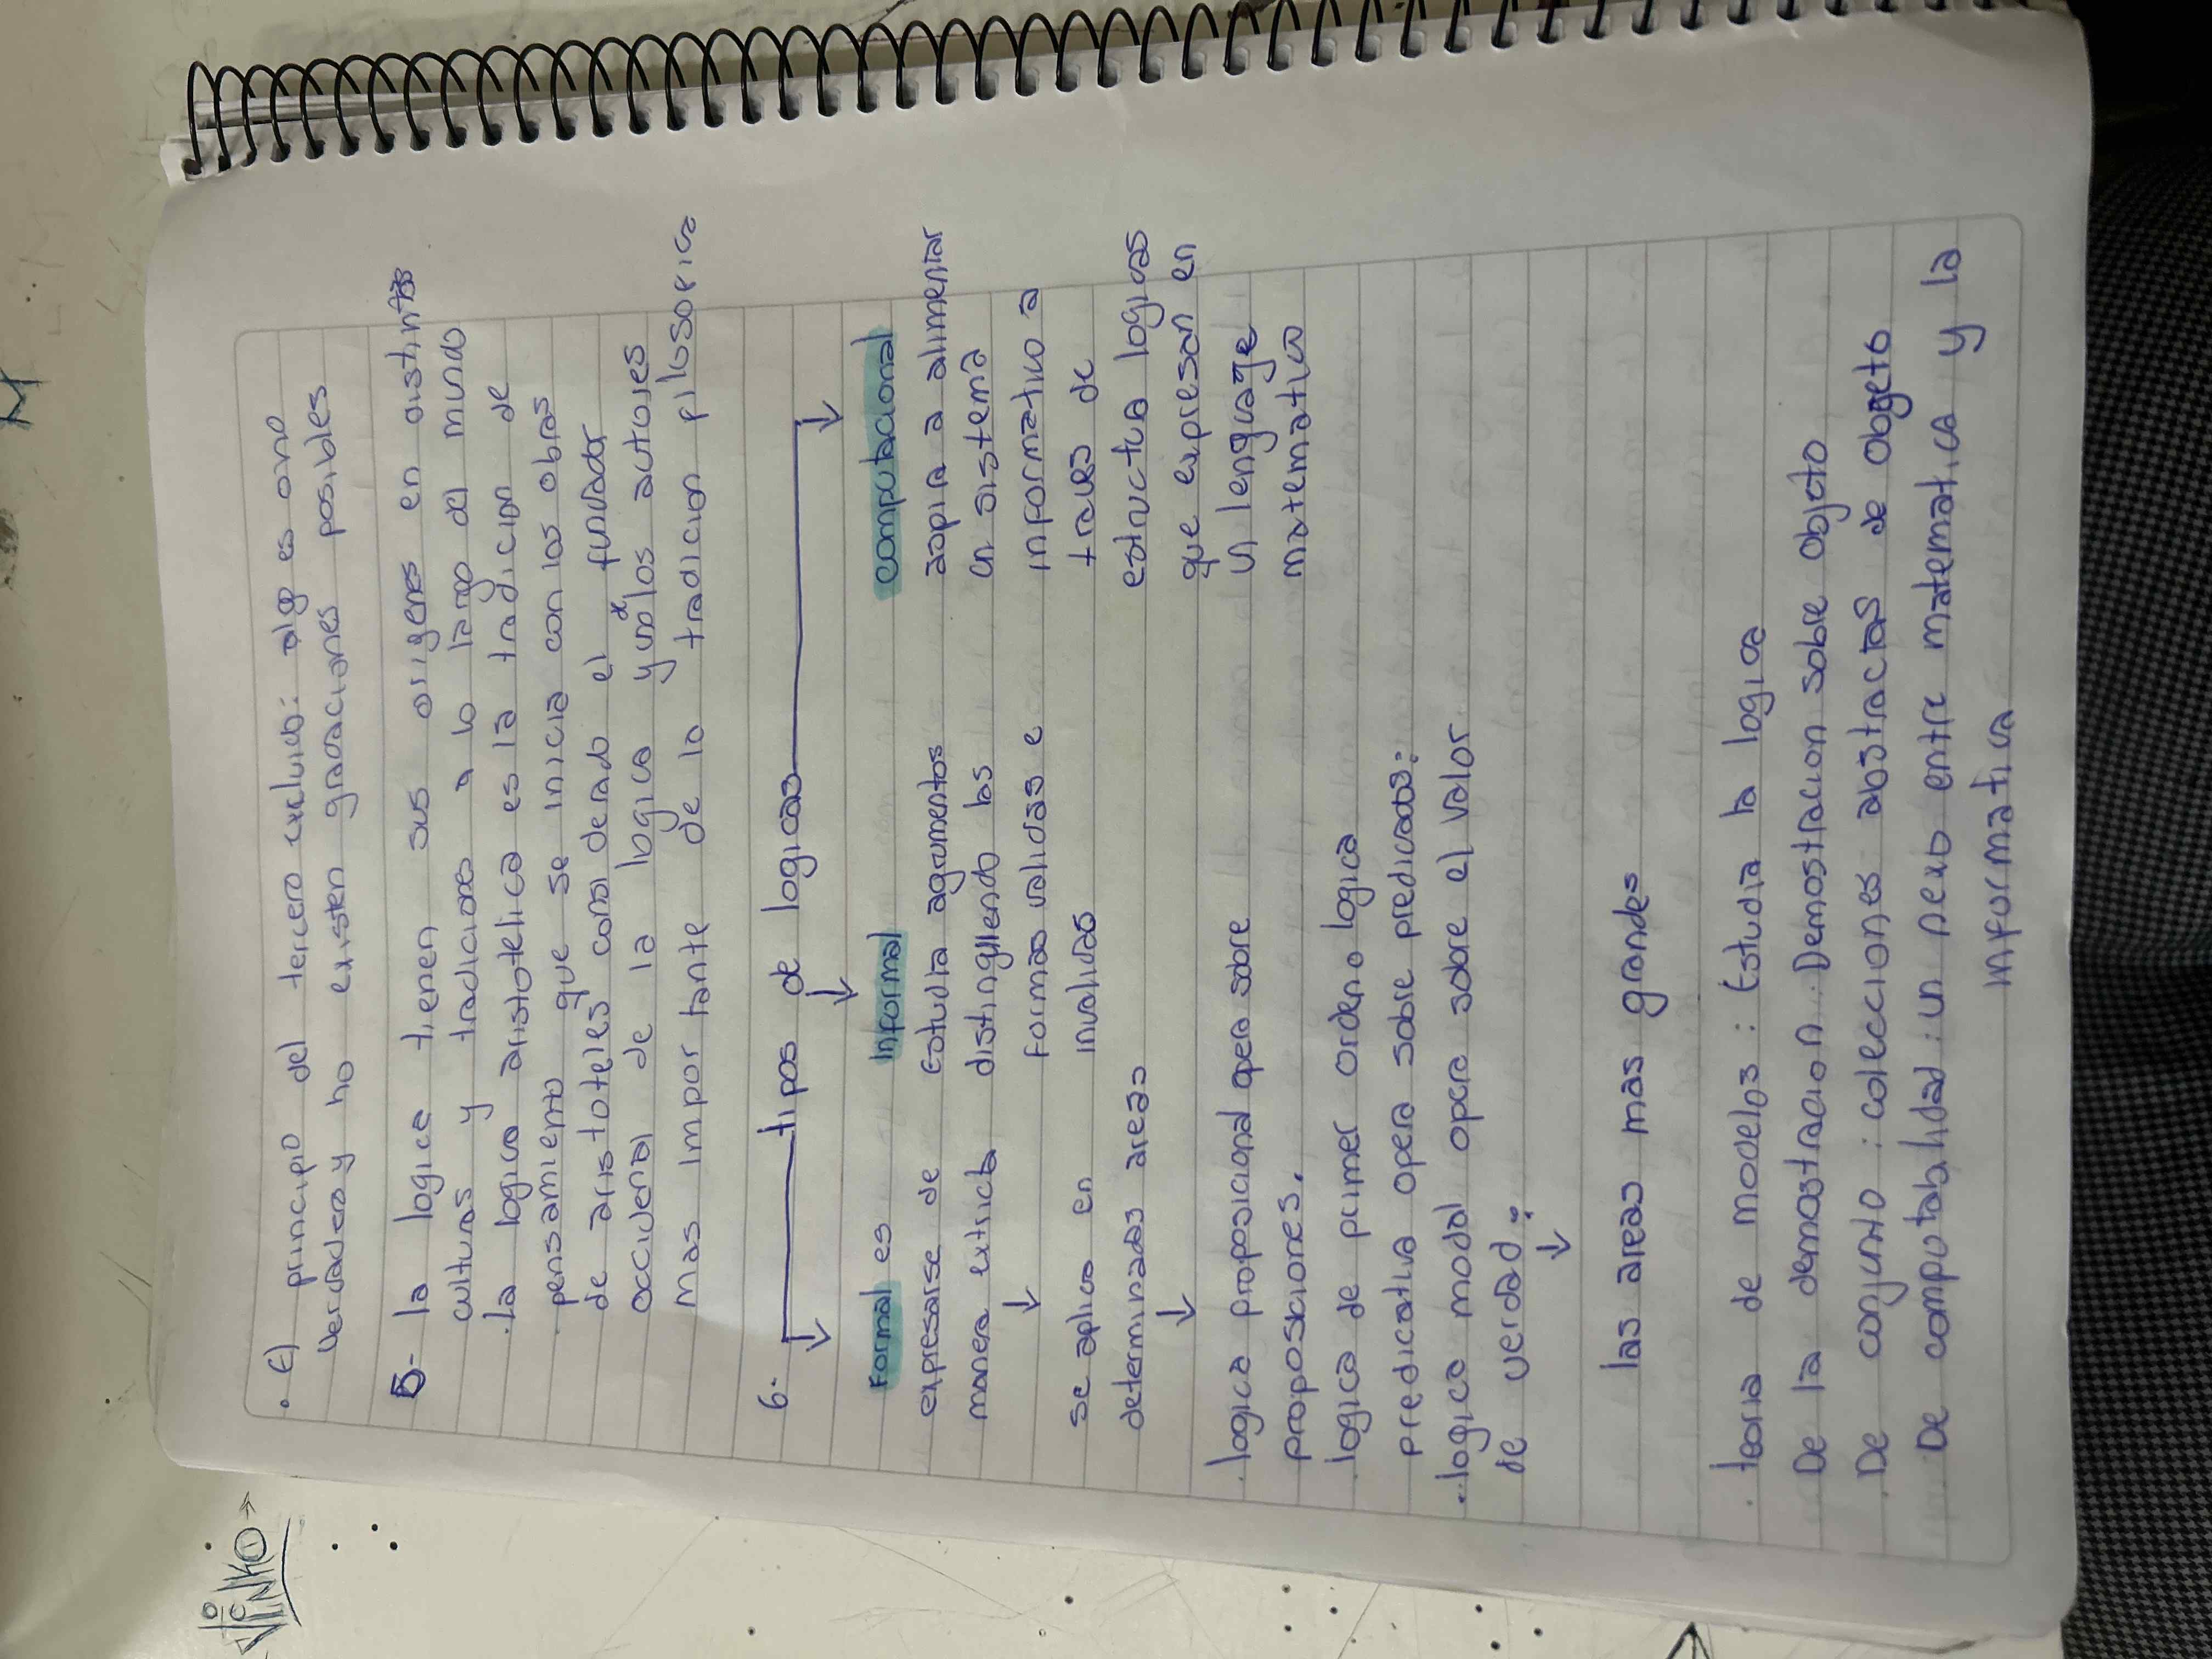 . E) principio del tercero excluido: algo es o no
verdadero y no existen gradaciones posibles
5- la logica tienen sus origenes en distintas
culturas y tradiciones a lo largo del mundo
. la logica aristotelica es la tradicion de
. pensamiento que se inicia con las obras
de aristoteles considerado el fundador
occidental de la logica y uno de los autores
mas importante de la tradicion filosofica
6- tipos de logicas
Formal es
expresarse de
manera extricta
↓
se aplica en
determinadas areas
↓
Informal
estudia agrumentos
distinguiendo las
formas validas e
invalidas
computacional
aopia a alimentar
un sistema
informatico a
traves de
estructua logicas
que expresan en
un lenguage
matematico
. logica proposicional opera sobre
proposiciones.
. logica de primer orden o logica
predicativa opera sobre predicados:
. logica modal opera sobre el valor
de verdad:
↓
las areas mas grandes
. teoria de modelos : Estudia la logica
De la demostracion. Demostracion sobre objeto
. De conjunto : colecciones abstractas de objeto
. De computabilidad : un nexo entre matematica y la
informatica